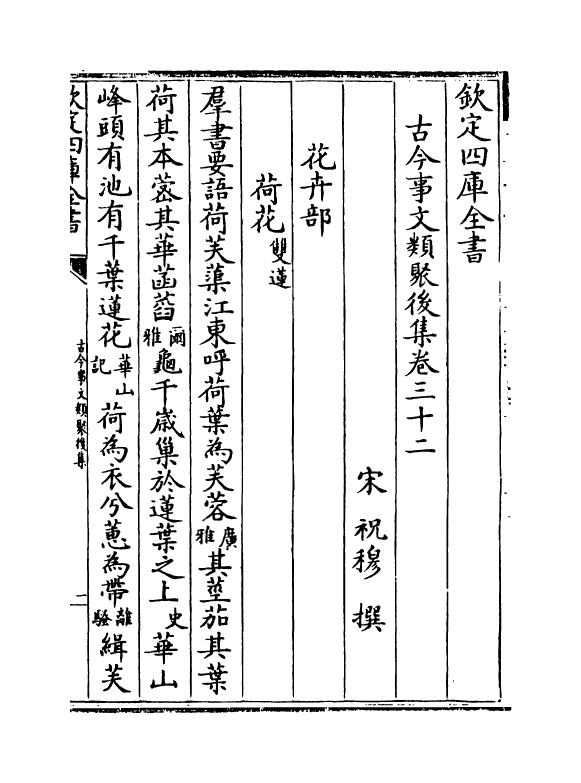 欽定四庫全書
古今事文類聚後集卷三十二
宋 祝穆 撰
花卉部
荷花雙蓮
羣書要語荷芙蕖江東呼荷葉為芙蓉廣雅其莖茄其葉
荷其本蔤其華菡萏爾雅龜千歲巢於蓮葉之上史華山
峰頭有池有千葉蓮花華山記荷為衣兮蕙為帶離騷緝芙
欽定四庫全書
古今事文類聚後集